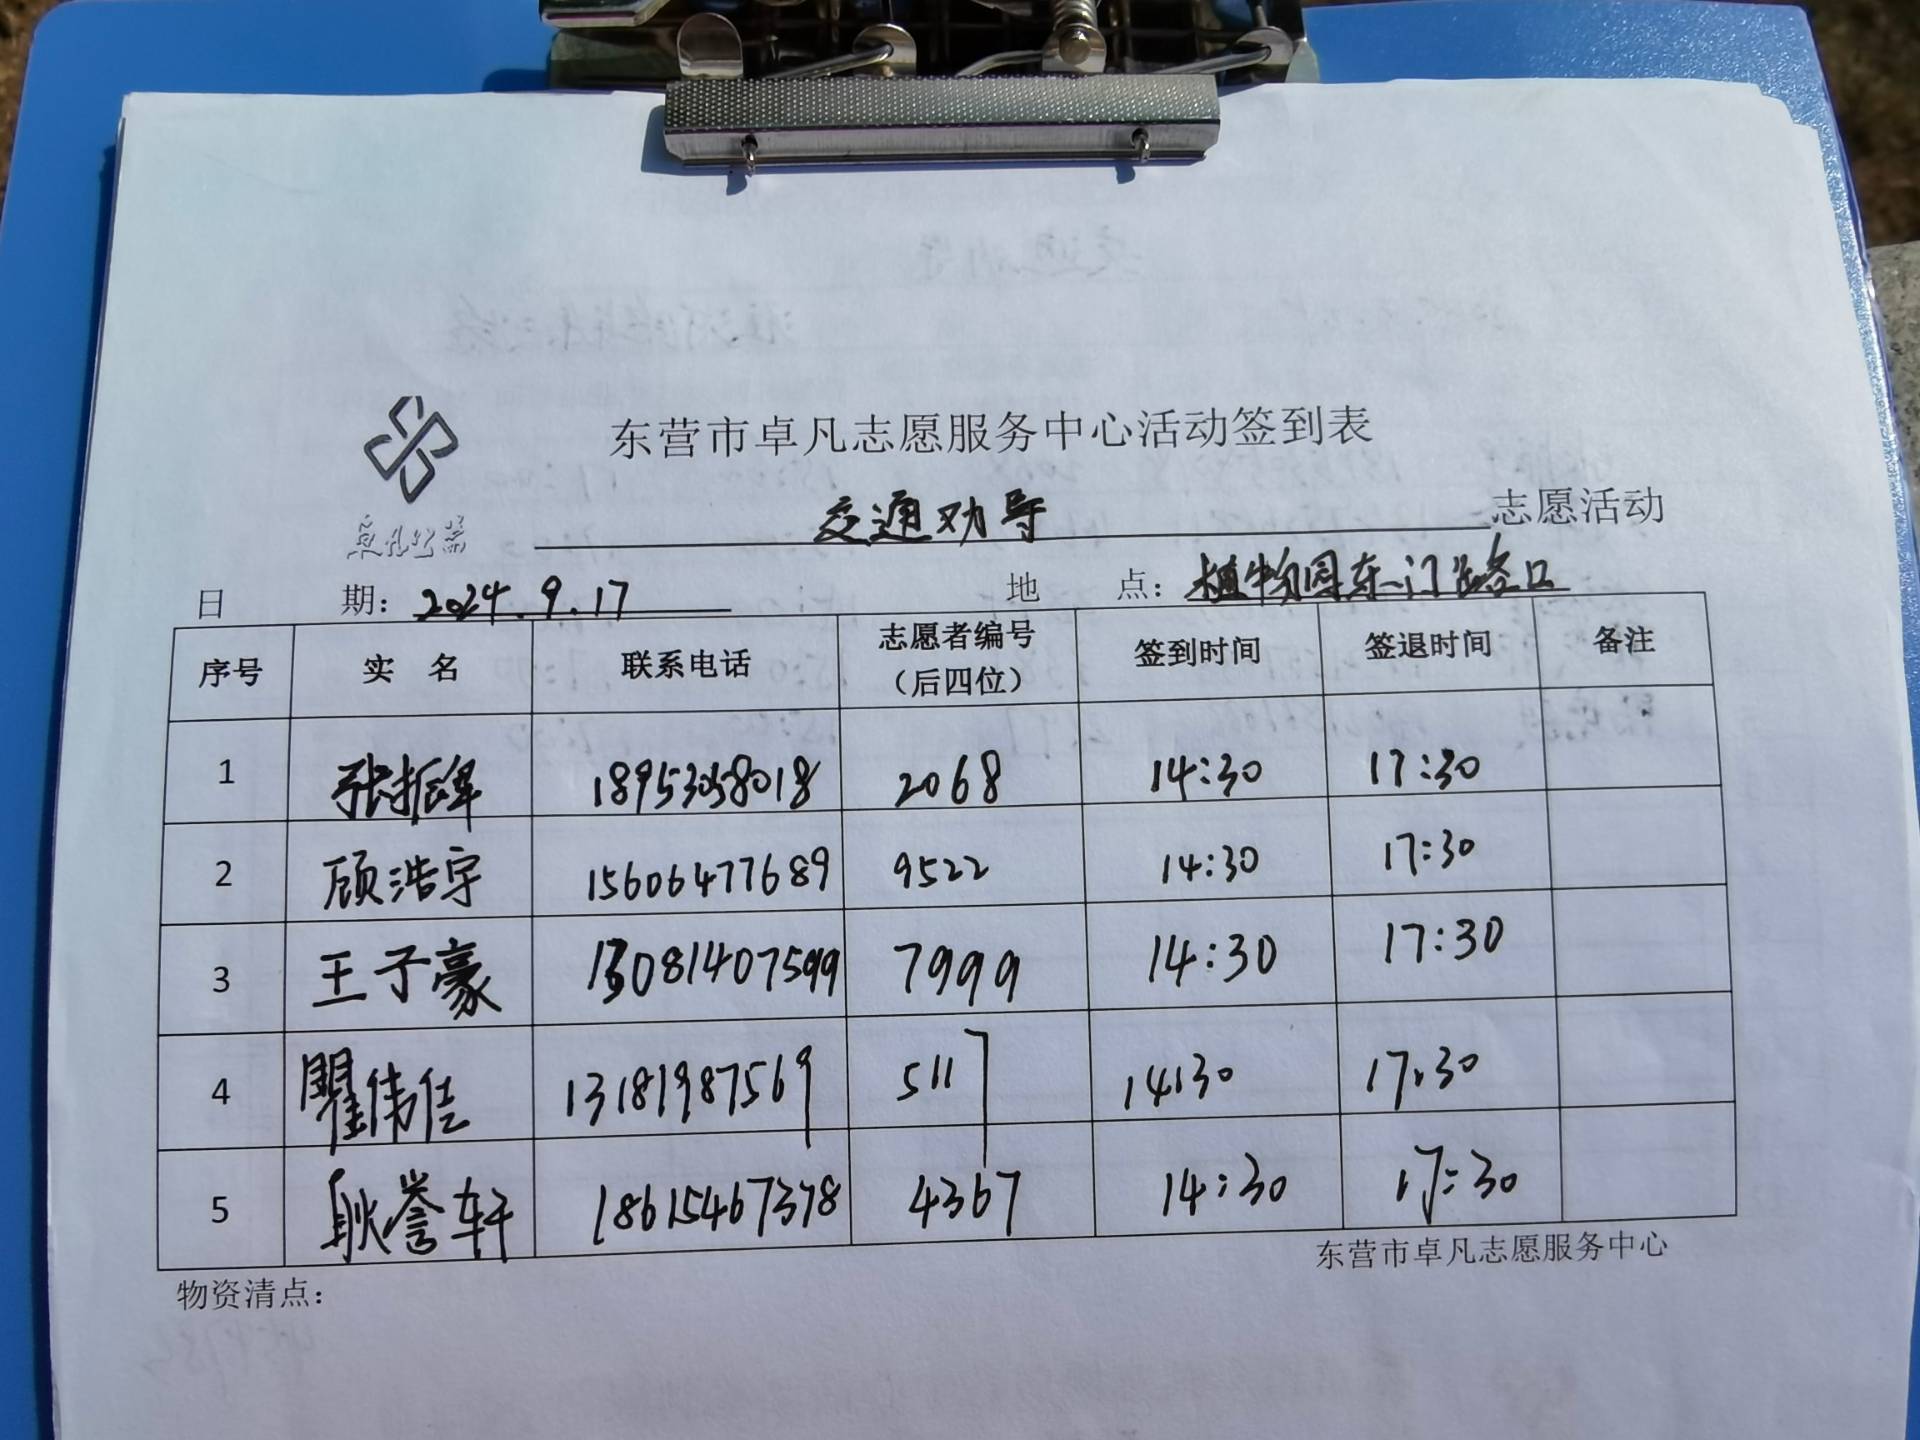 东营市卓凡志愿服务中心活动签到表
卓凡公益
交通劝导 志愿活动
日 期：2024.9.17 地 点：植物园东门路口
序号 实 名 联系电话 志愿者编号（后四位） 签到时间 签退时间 备注
1 张振峰 2068 14:30 17:30
2 顾浩宇 15606477689 9522 14:30 17:30
3 王子豪 13081407599 7999 14:30 17:30
4 瞿伟佳 13181987569 5117 14:30 17:30
5 耿誉轩 18615467378 4367 14:30 17:30
东营市卓凡志愿服务中心
物资清点：